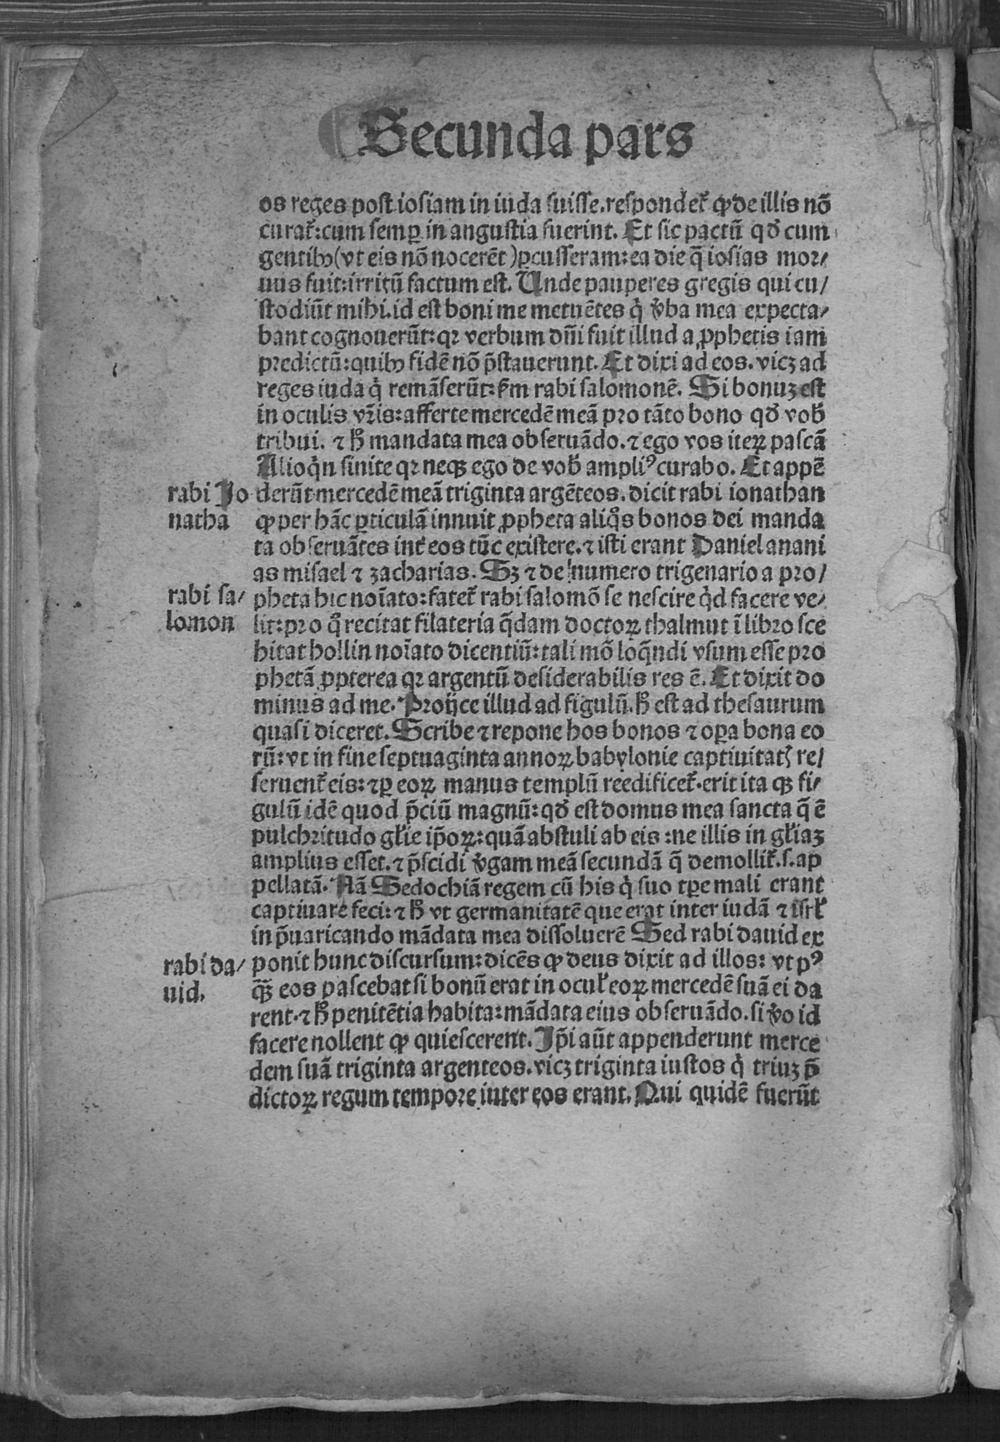 Secunda pars
os reges post iosiam in iuda fuisse. respondet̄ ꝙ de illis nō
curat̄: cum semꝑ in angustia fuerint. Et sic pactū qd̄ cum
gentibꝰ (vt eis nō nocerēt) ꝑcusseram: ea die q̄ iosias mor⸗
uus fuit: irritū factum est. Unde pauperes gregis qui cu⸗
stodiūt mihi. id est boni me metuētes q̇ v̄ba mea expecta⸗
bant cognouerūt: qr verbum dn̄i fuit illud a ꝓphetis iam
predictū: quibꝰ fidē nō p̄stauerunt. Et dixi ad eos. vicꝫ ad
reges iuda q̇ remāserūt: ẜm rabi salomonē. Si bonuꝫ est
in oculis vr̄is: afferte mercedē meā pro tāto bono qd̄ vob̄
tribui. ⁊ h̄ mandata mea obseruādo. ⁊ ego vos iteꝝ pascā
Alioqn̄ sinite qr neqꝫ ego de vob̄ ampliꝰ curabo. Et appē
rabi Jo
natha
derūt mercedē meā triginta argēteos. dicit rabi ionathan
ꝙ per hāc ꝑticulā innuit ꝓpheta aliq̊s bonos dei manda
ta obseruātes int̄ eos tūc existere. ⁊ isti erant Daniel anani
as misael ⁊ zacharias. Sꝫ ⁊ de numero trigenario a pro⸗
rabi sa⸗
lomon
pheta hic noīato: fatet̄ rabi salomō se nescire qd̄ facere ve⸗
lit: pro q̊ recitat filateria q̄dam doctoꝝ thalmut ī libro sce
hitat hollin noīato dicentiū: tali mō loq̄ndi vsum esse pro
phetā ꝓpterea qr argentū desiderabilis res ē. Et dixit do
minus ad me. Proijce illud ad figulū. h̄ est ad thesaurum
quasi diceret. Scribe ⁊ repone hos bonos ⁊ oꝑa bona eo
rū: vt in fine septuaginta annoꝝ babylonie captiuitatꝭ re⸗
seruent̄ eis: ⁊ ꝑ eoꝝ manus templū reedificet̄. erit ita qꝫ fi⸗
gulū idē quod p̄ciū magnū: qd̄ est domus mea sancta q̄ ē
pulchritudo gl̄ie ip̄oꝝ: quā abstuli ab eis: ne illis in gl̄iaꝫ
amplius esset. ⁊ p̄scidi v̄gam meā secundā q̄ demollit̄. s. ap
pellatā. Nā Sedochiā regem cū his q̇ suo tꝑe mali erant
captiuare feci: ⁊ h̄ vt germanitatē que erat inter iudā ⁊ isrl̄
in p̄uaricando mādata mea dissoluerē Sed rabi dauid ex
rabi da⸗
uid.
ponit hunc discursum: dicēs ꝙ deus dixit ad illos: vt pꝰ
qꝫ̄ eos pascebat si bonū erat in ocul̄ eoꝝ mercedē suā ei da
rent. ⁊ h̄ penitētia habita: mādata eius obseruādo. si v̄o id
facere nollent ꝙ quiescerent. Ip̄i aūt appenderunt merce
dem suā triginta argenteos. vicꝫ triginta iustos q̇ triuꝫ p̄
dictoꝝ regum tempore inter eos erant. Qui quidē fuerūt